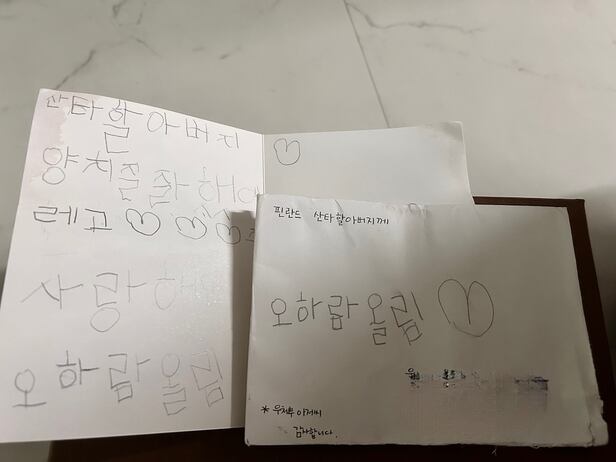 산타할아버지
양치질잘해
레고
사랑해
오하람올림
핀란드 산타할아버지께
오하람올림
* 우체부 아저씨
감사합니다.